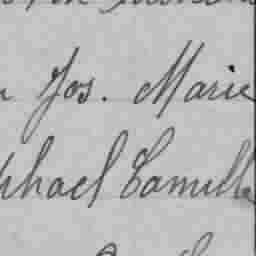 Jos. Marie
phael Camille